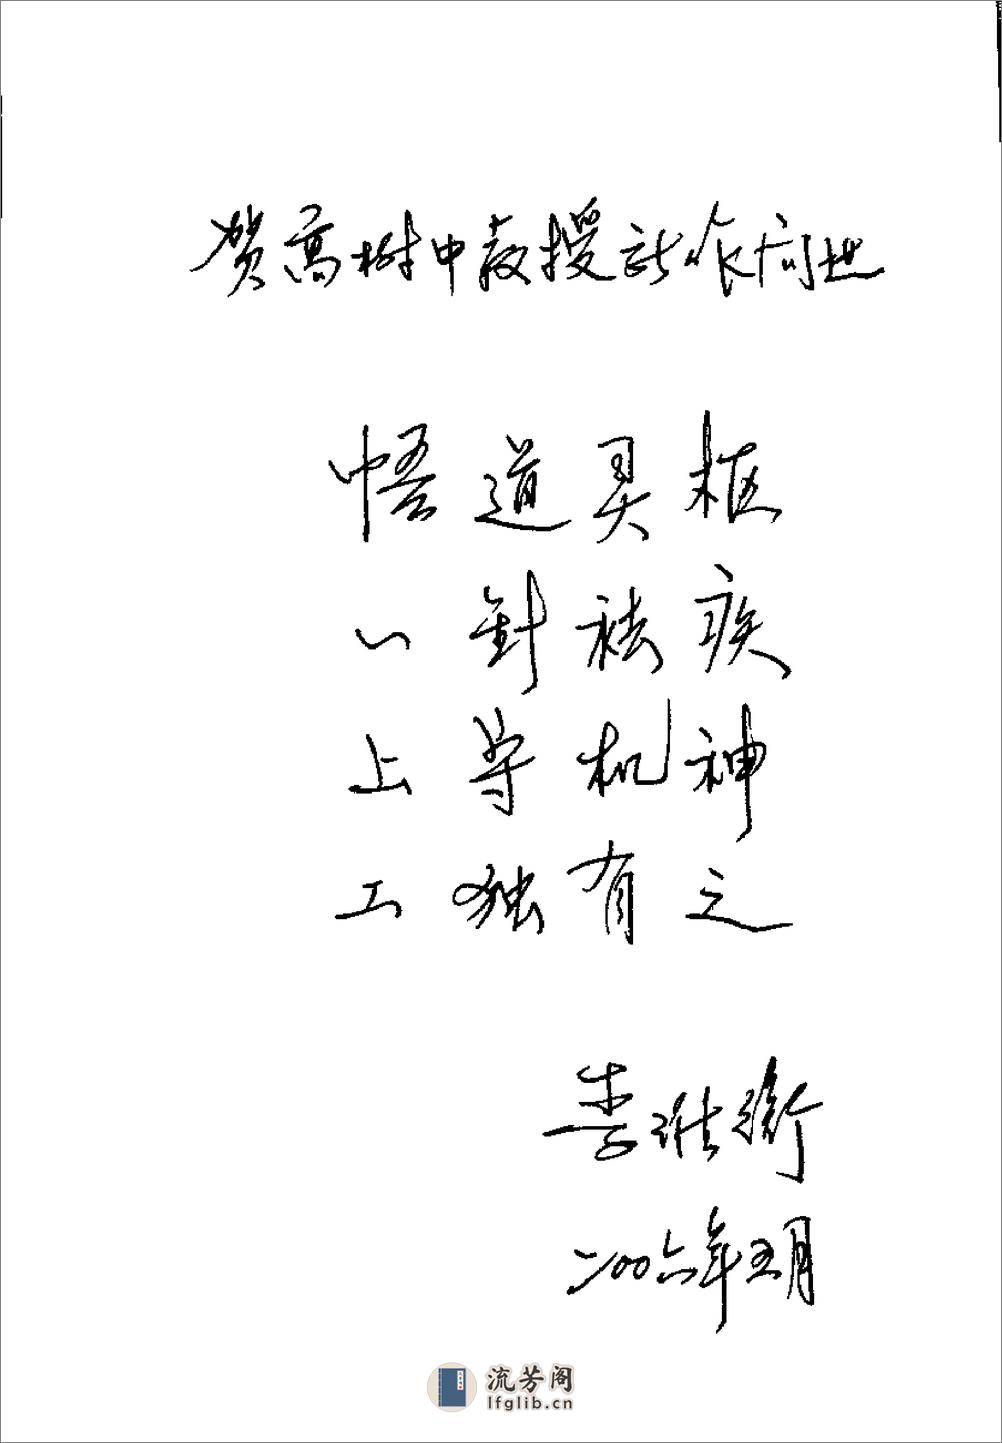 贺高树中教授新作问世
悟道灵枢
以针祛疾
上守机神
工独有之
李维衡
二〇〇六年五月
流芳阁
lfglib.cn